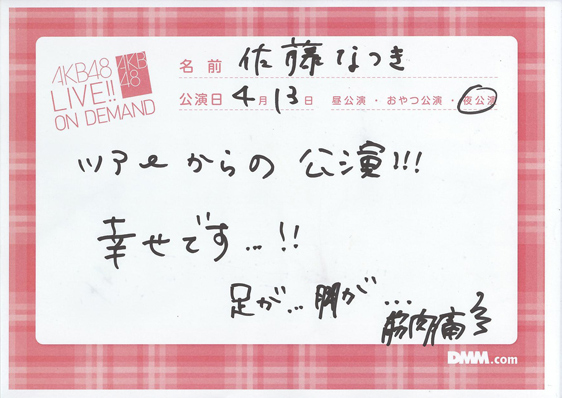 AKB48
LIVE!!
ON DEMAND
AKB
48
名前 佐藤なつき
公演日 4月13日 昼公演・おやつ公演・夜公演
ツアーからの 公演!!!
幸せです...!!
足が... 脚が...
筋肉痛
DMM.com